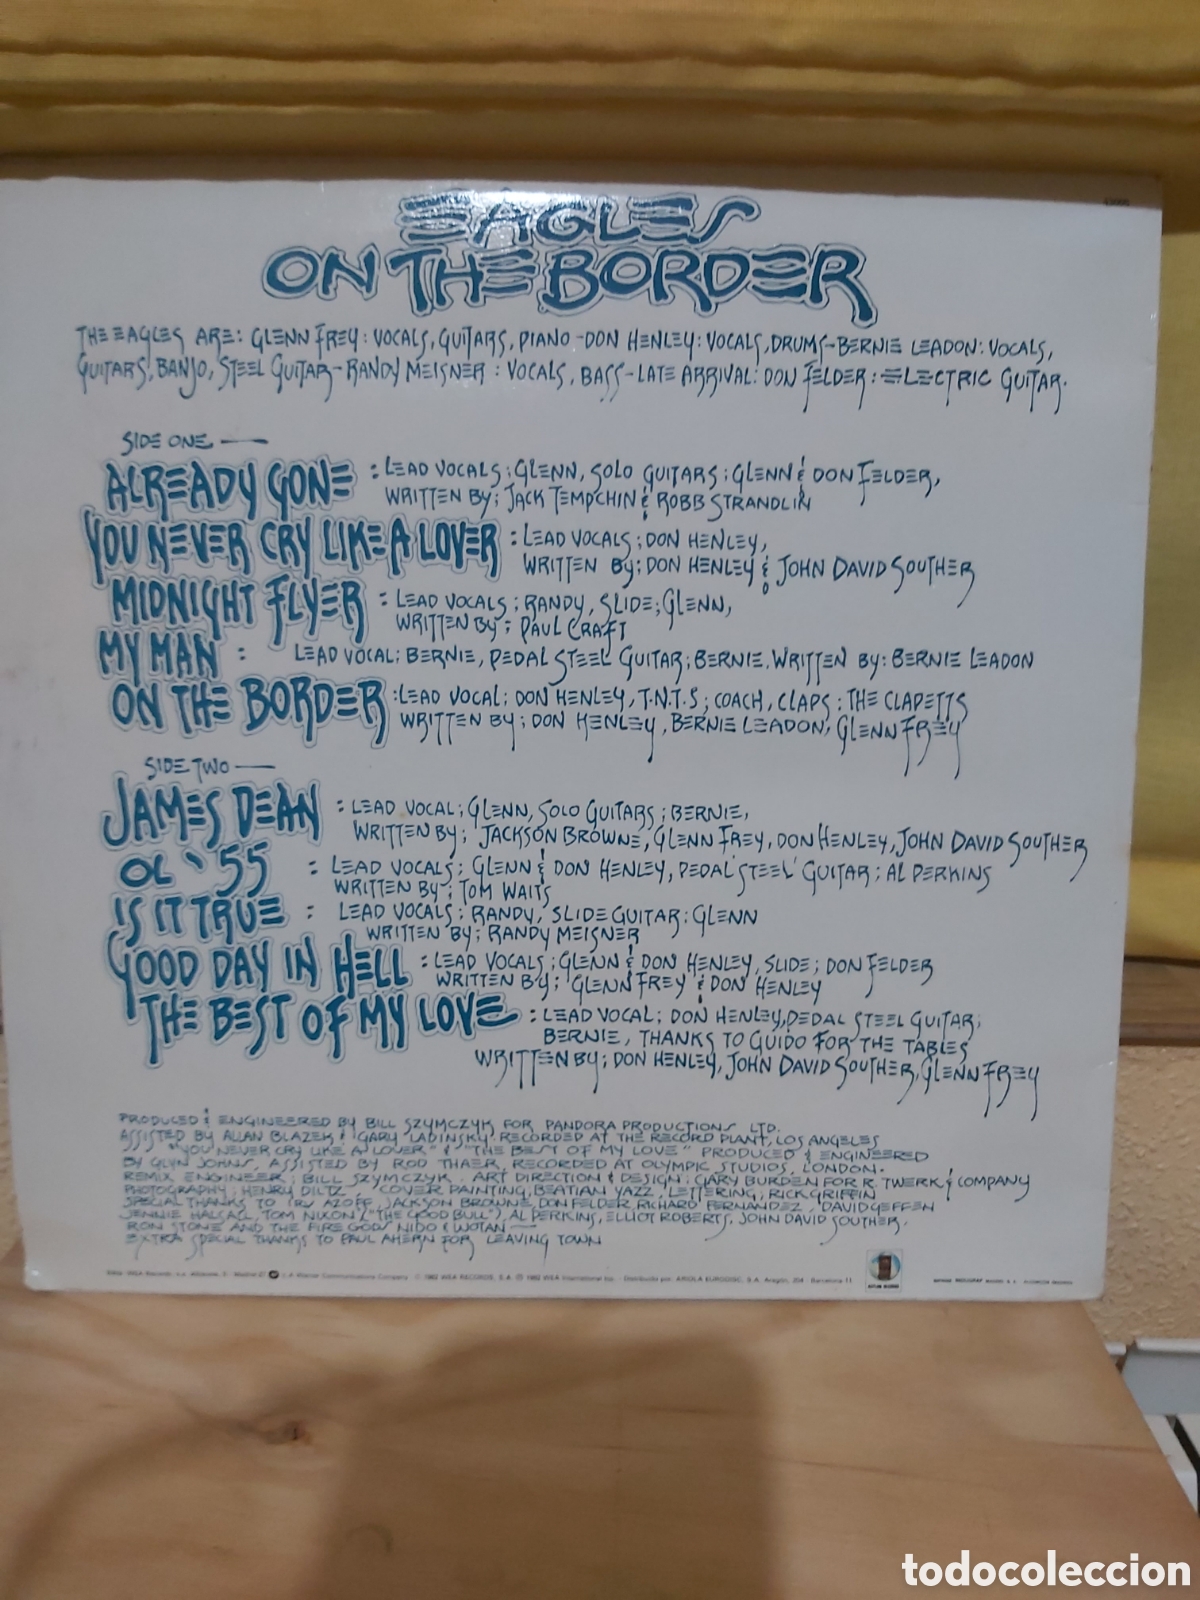 EAGLES
ON THE BORDER
THE EAGLES ARE: GLENN FREY: VOCALS, GUITARS, PIANO - DON HENLEY: VOCALS, DRUMS - BERNIE LEADON: VOCALS,
GUITARS, BANJO, STEEL GUITAR - RANDY MEISNER: VOCALS, BASS - LATE ARRIVAL: DON FELDER: ELECTRIC GUITAR.
SIDE ONE —
ALREADY GONE : LEAD VOCALS; GLENN, SOLO GUITARS; GLENN & DON FELDER,
WRITTEN BY; JACK TEMPCHIN & ROBB STRANDLIN
YOU NEVER CRY LIKE A LOVER : LEAD VOCALS; DON HENLEY,
WRITTEN BY; DON HENLEY & JOHN DAVID SOUTHER
MIDNIGHT FLYER : LEAD VOCALS; RANDY, SLIDE; GLENN,
WRITTEN BY; PAUL CRAFT
MY MAN : LEAD VOCAL; BERNIE, PEDAL STEEL GUITAR; BERNIE, WRITTEN BY: BERNIE LEADON
ON THE BORDER : LEAD VOCAL; DON HENLEY, T.N.T.S; COACH, CLAPS: THE CLAPETTS
WRITTEN BY; DON HENLEY, BERNIE LEADON, GLENN FREY
SIDE TWO —
JAMES DEAN : LEAD VOCAL; GLENN, SOLO GUITARS; BERNIE,
WRITTEN BY; JACKSON BROWNE, GLENN FREY, DON HENLEY, JOHN DAVID SOUTHER
OL '55 : LEAD VOCALS; GLENN & DON HENLEY, PEDAL STEEL GUITAR; AL PERKINS
WRITTEN BY; TOM WAITS
IS IT TRUE : LEAD VOCALS; RANDY, SLIDE GUITAR: GLENN
WRITTEN BY; RANDY MEISNER
GOOD DAY IN HELL : LEAD VOCALS; GLENN & DON HENLEY, SLIDE; DON FELDER
WRITTEN BY; GLENN FREY & DON HENLEY
THE BEST OF MY LOVE : LEAD VOCAL; DON HENLEY, PEDAL STEEL GUITAR;
BERNIE, THANKS TO GUIDO FOR THE TABLES
WRITTEN BY; DON HENLEY, JOHN DAVID SOUTHER, GLENN FREY
PRODUCED & ENGINEERED BY BILL SZYMCZYK FOR PANDORA PRODUCTIONS LTD.
ASSISTED BY ALLAN BLAZEK & GARY LADINSKY. RECORDED AT THE RECORD PLANT, LOS ANGELES
"YOU NEVER CRY LIKE A LOVER" & "THE BEST OF MY LOVE" PRODUCED & ENGINEERED
BY GLYN JOHNS, ASSISTED BY ROD THAER, RECORDED AT OLYMPIC STUDIOS, LONDON.
REMIX ENGINEER; BILL SZYMCZYK. ART DIRECTION & DESIGN; GARY BURDEN FOR R. TWERK & COMPANY
PHOTOGRAPHY; HENRY DILTZ COVER PAINTING; BEATIAN YAZZ, LETTERING; RICK GRIFFIN
SPECIAL THANKS TO IRV AZOFF, JACKSON BROWNE, DON FELDER, RICHARD FERNANDEZ, DAVID GEFFEN
JENNIE HALSALL, TOM NIXON, ("THE GOOD BULL") AL PERKINS, ELLIOT ROBERTS, JOHN DAVID SOUTHER,
RON STONE AND THE FIRE GODS NIDO & WOTAN —
EXTRA SPECIAL THANKS TO PAUL AHERN FOR LEAVING TOWN
A Warner Communications Company © 1982 WEA RECORDS, S.A. ℗ 1982 WEA International Inc. - Distribuido por: ARIOLA EURODISC, S.A. Aragón, 204 - Barcelona-11
todocoleccion